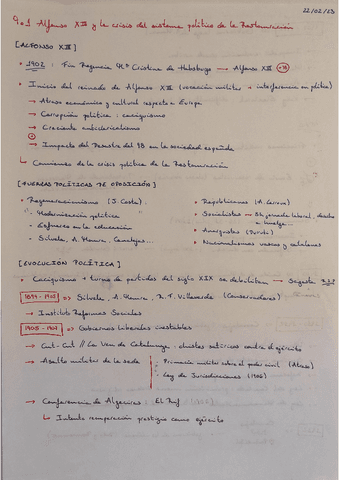 22/02/23
9.1 Alfonso XIII y la crisis del sistema político de la Restauración
[ALFONSO XIII]
• 1902: Fin Regencia Mª Cristina de Habsburgo → Alfonso XIII
• Inicio del reinado de Alfonso XIII (vocación militar + interferencia en política)
→ Atraso económico y cultural respecto a Europa
→ Corrupción política: caciquismo
→ Creciente anticlericalismo
→ Impacto del Desastre del 98 en la sociedad española
↳ Comienzo de la crisis política de la Restauración
[FUERZAS POLÍTICAS DE OPOSICIÓN]
• Regeneracionismo (J. Costa):
· Modernización política
· Esfuerzo en la educación
· Silvela, A. Maura, Canalejas...
• Republicanos (A. Lerroux)
• Socialistas → 8h jornada laboral, derecho a huelga...
• Anarquistas
• Nacionalismos vascos y catalanes
[EVOLUCIÓN POLÍTICA]
• Caciquismo + turno de partidos del siglo XIX se debilitan → Sagasta
1899-1905 => Silvela, A. Maura, Villaverde (Conservadores)
→ Instituto Reformas Sociales
1905-1907 => Gobiernos liberales inestables
→ Cut-Cut // La Veu de Catalunya: chistes satíricos contra el ejército
→ Asalto militar de la sede
· Primacía militar sobre el poder civil
· Ley de Jurisdicciones (1906)
→ Conferencia de Algeciras: El Rif
↳ Intento recuperación prestigio como ejército